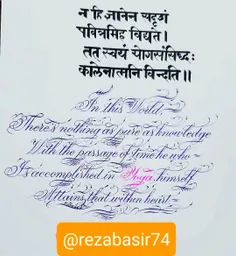 न हि ज्ञानेन सदृशं
पवित्रमिह विद्यते।
तत् स्वयं योगसंसिद्धः
कालेनात्मनि विन्दति॥
In this World,
There's nothing as pure as knowledge
With the passage of time he who
Is accomplished in Yoga, himself
Attains that within heart
@rezabasir74